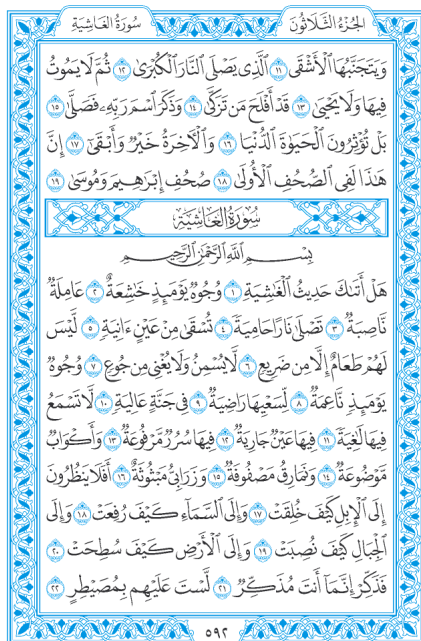 الجُزْءُ الثَّلَاثُونَ
سُورَةُ الغَاشِيَةِ
وَيَتَجَنَّبُهَا الْأَشْقَى ١١ الَّذِي يَصْلَى النَّارَ الْكُبْرَىٰ ١٢ ثُمَّ لَا يَمُوتُ
فِيهَا وَلَا يَحْيَىٰ ١٣ قَدْ أَفْلَحَ مَن تَزَكَّىٰ ١٤ وَذَكَرَ اسْمَ رَبِّهِۦ فَصَلَّىٰ ١٥
بَلْ تُؤْثِرُونَ الْحَيَوٰةَ الدُّنْيَا ١٦ وَالْآخِرَةُ خَيْرٌ وَأَبْقَىٰ ١٧ إِنَّ
هَٰذَا لَفِي الصُّحُفِ الْأُولَىٰ ١٨ صُحُفِ إِبْرَٰهِيمَ وَمُوسَىٰ ١٩
سُورَةُ الغَاشِيَةِ
بِسْمِ اللَّهِ الرَّحْمَٰنِ الرَّحِيمِ
هَلْ أَتَىٰكَ حَدِيثُ الْغَٰشِيَةِ ١ وُجُوهٌ يَوْمَئِذٍ خَٰشِعَةٌ ٢ عَامِلَةٌ
نَّاصِبَةٌ ٣ تَصْلَىٰ نَارًا حَامِيَةً ٤ تُسْقَىٰ مِنْ عَيْنٍ ءَانِيَةٍ ٥ لَّيْسَ
لَهُمْ طَعَامٌ إِلَّا مِن ضَرِيعٍ ٦ لَّا يُسْمِنُ وَلَا يُغْنِي مِن جُوعٍ ٧ وُجُوهٌ
يَوْمَئِذٍ نَّاعِمَةٌ ٨ لِّسَعْيِهَا رَاضِيَةٌ ٩ فِي جَنَّةٍ عَالِيَةٍ ١٠ لَّا تَسْمَعُ
فِيهَا لَٰغِيَةً ١١ فِيهَا عَيْنٌ جَارِيَةٌ ١٢ فِيهَا سُرُرٌ مَّرْفُوعَةٌ ١٣ وَأَكْوَابٌ
مَّوْضُوعَةٌ ١٤ وَنَمَارِقُ مَصْفُوفَةٌ ١٥ وَزَرَابِيُّ مَبْثُوثَةٌ ١٦ أَفَلَا يَنظُرُونَ
إِلَى الْإِبِلِ كَيْفَ خُلِقَتْ ١٧ وَإِلَى السَّمَاءِ كَيْفَ رُفِعَتْ ١٨ وَإِلَى
الْجِبَالِ كَيْفَ نُصِبَتْ ١٩ وَإِلَى الْأَرْضِ كَيْفَ سُطِحَتْ ٢٠
فَذَكِّرْ إِنَّمَا أَنتَ مُذَكِّرٌ ٢١ لَّسْتَ عَلَيْهِم بِمُصَيْطِرٍ ٢٢
٥٩٢